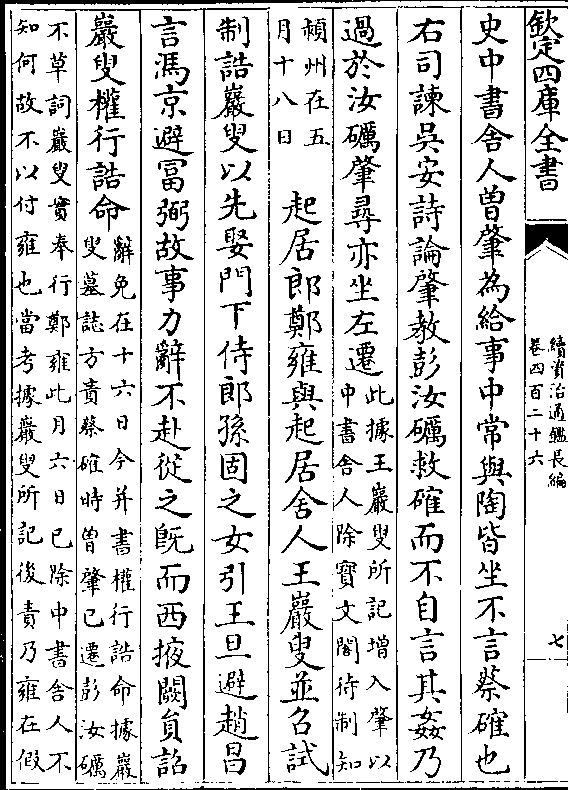 欽定四庫全書
續資治通鑑長編
卷四百二十六
七
史中書舍人曾肇為給事中常與陶皆坐不言蔡確也
右司諫吳安詩論肇教彭汝礪救確而不自言其姦乃
過於汝礪肇尋亦坐左遷
此據王巖叟所記增入肇以
中書舍人除寶文閣待制知
潁州在五
月十八日
起居郎鄭雍與起居舍人王巖叟並召試
制誥巖叟以先娶門下侍郎孫固之女引王旦避趙昌
言馮京避冨弼故事力辭不赴從之旣而西掖闕貟詔
巖叟權行誥命
辭免在十六日今并書權行誥命據巖
叟墓誌方責蔡確時曾肇已遷彭汝礪
不草詞巖叟實奉行鄭雍此月六日已除中書舍人不
知何故不以付雍也當考據巖叟所記後責乃雍在假